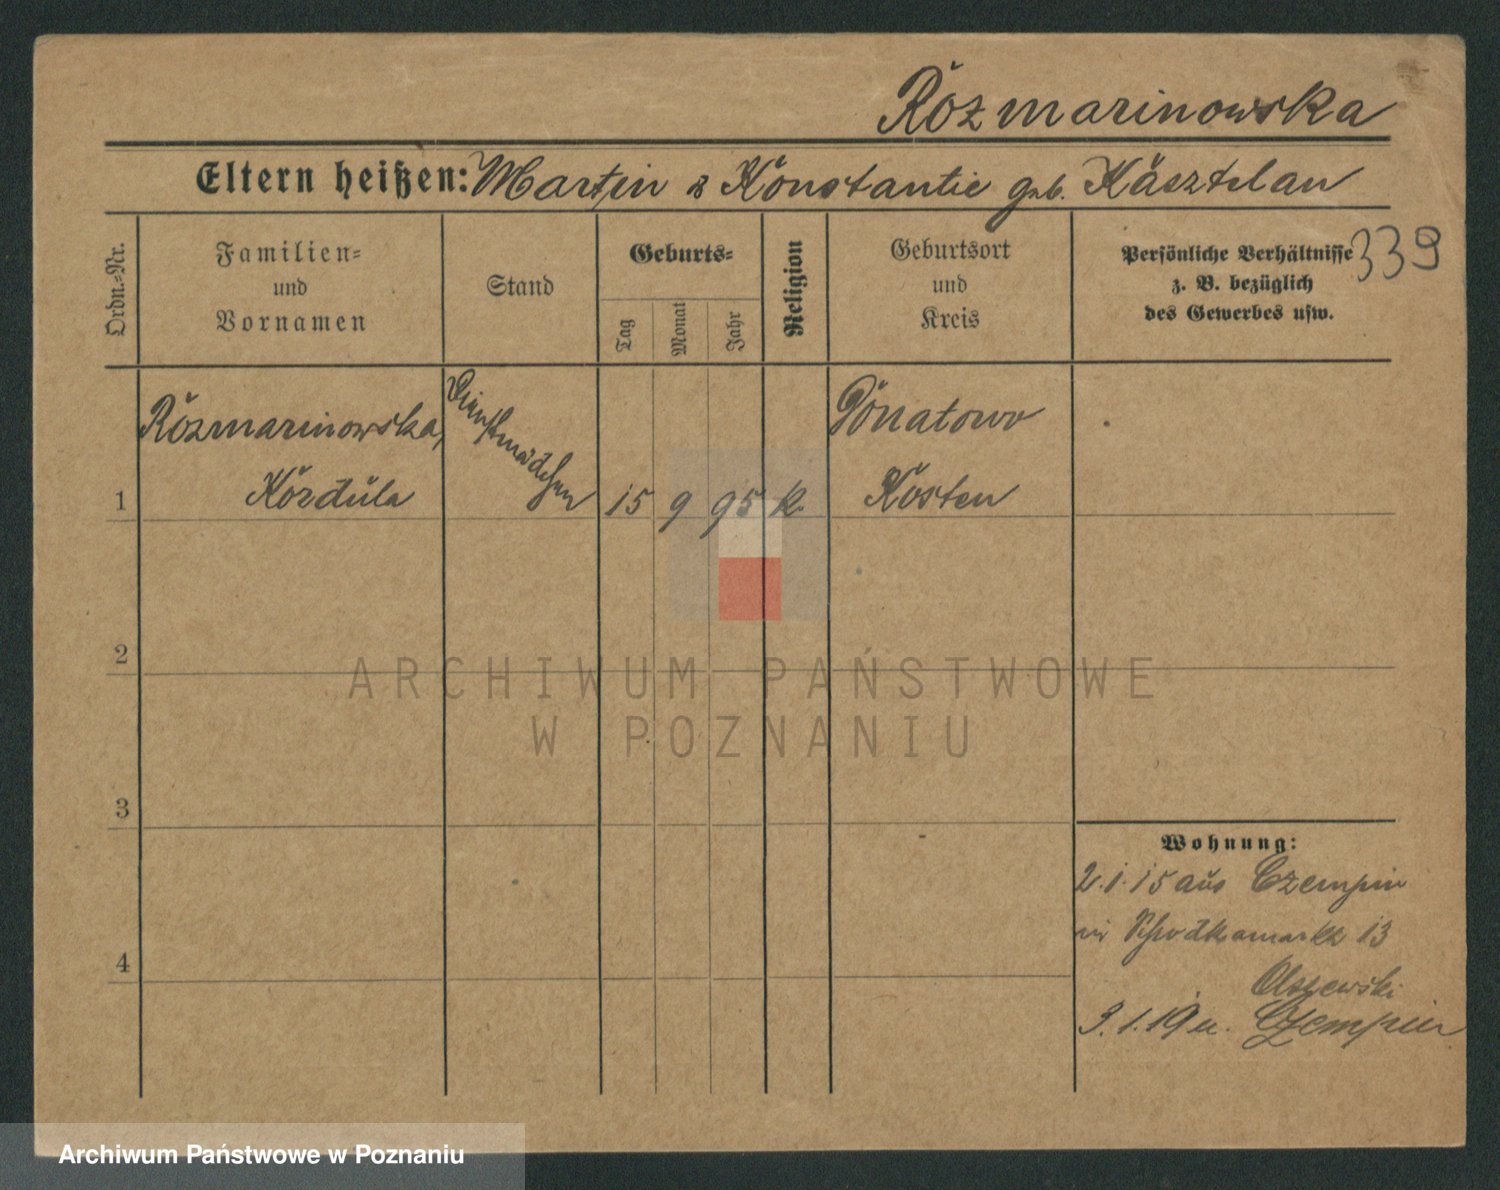 Rozmarinowska
Eltern heißen: Martin & Konstantie geb. Kasztelan
339
Ordn.=Nr.
Familien=
und
Vornamen
Stand
Geburts=
Tag
Monat
Jahr
Religion
Geburtsort
und
Kreis
Persönliche Verhältnisse
z. B. bezüglich
des Gewerbes usw.
1
Rozmarinowska,
Kordula
Dienstmädchen
15 9 95 k.
Ponatowo
Kosten
2
3
4
Wohnung:
2.1.15 aus Czempin
13
Olszewski
3.1.19 n. Czempin
ARCHIWUM PAŃSTWOWE
W POZNANIU
Archiwum Państwowe w Poznaniu